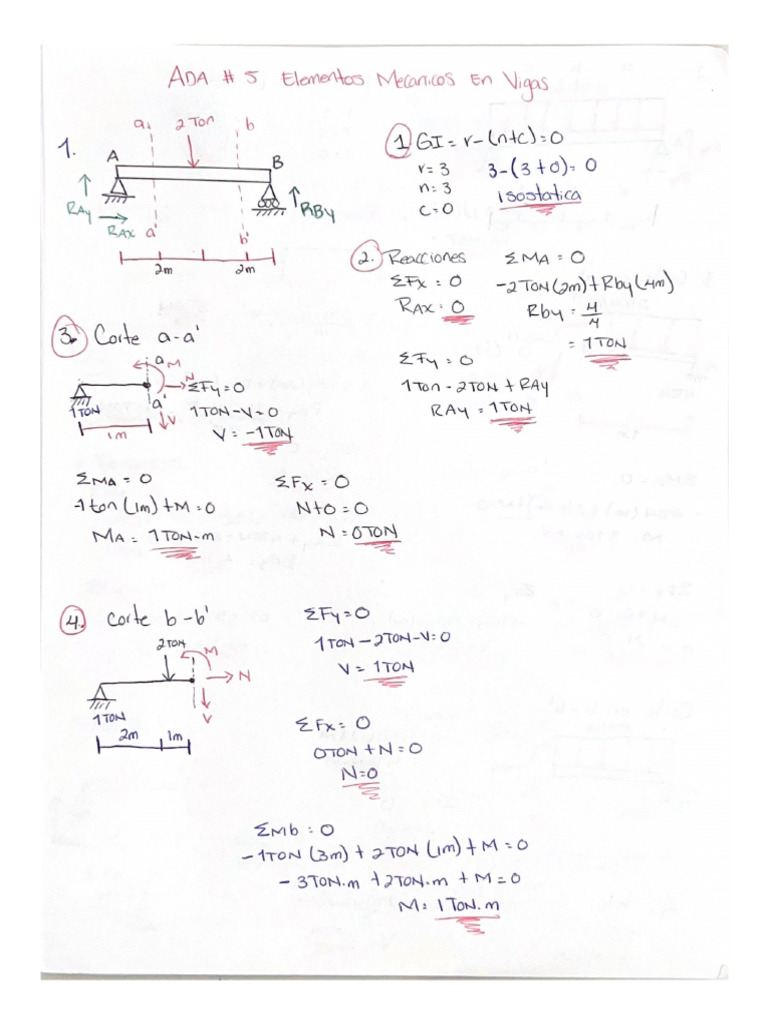 ADA # 5, Elementos Mecanicos En Vigas
1.
a 2 TON b
A B
RAy RAx a' b' RBy
2m 2m
1 GI = r-(n+c)=0
r= 3 3-(3+0)= 0
n= 3 isostatica
c= 0
2. Reacciones ΣMA = 0
ΣFx = 0 -2TON(2m)+Rby(4m)
RAx = 0 Rby = 4/4
= 1TON
ΣFy = 0
1Ton - 2TON + RAy
RAy = 1TON
3. Corte a-a'
a M
N
1TON a' V
1m
ΣFy = 0
1TON-V=0
V= -1TON
ΣMA = 0 ΣFx = 0
-1ton (1m)+M=0 N+0=0
MA = 1TON-m N = 0TON
4. Corte b-b'
2TON M
N
1TON V
2m 1m
ΣFy=0
1TON-2TON-V=0
V= 1TON
ΣFx= 0
0TON + N = 0
N=0
ΣMb = 0
-1TON (3m) + 2TON (1m) + M = 0
- 3TON.m +2TON.m + M = 0
M= 1TON.m